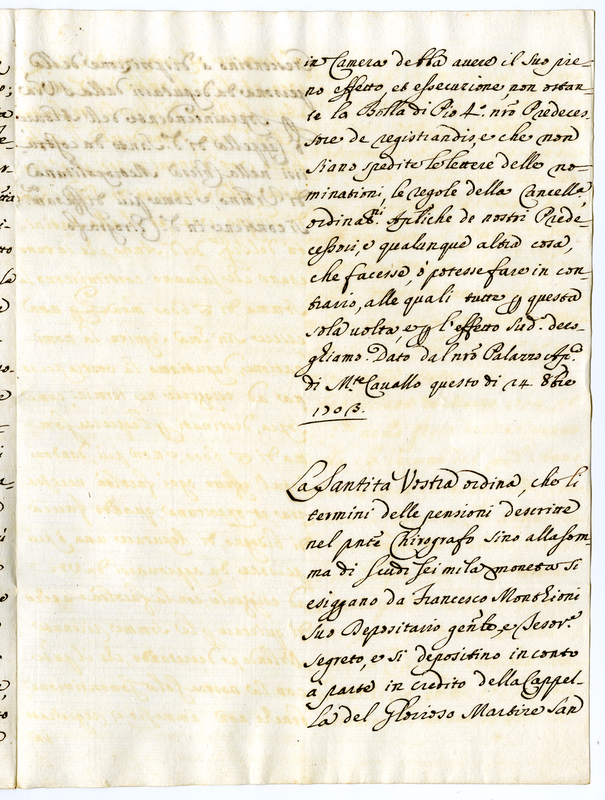 in Camera debba avere il suo pie-
no effetto, et essecuzione, non ostan-
te la Bolla di Pio 4.º nrõ Predeces-
sore de registrandis, e che non
siano spedite le lettere delle no-
minationi, le regole della Cancella,
ordina.ni Apliche de nostri Prede-
cessori, e qualunque altra cosa,
che facesse, ò potesse fare in con-
trario, alle quali tutte p questa
sola volta, e p l'effetto sud.º dero-
ghiamo. Dato dal nrõ Palazzo Ap.º
di M.te Cavallo questo dì 24 8bre
1703.
La Santità Vostra ordina, che li
termini delle pensioni descritte
nel pnte Chirografo sino alla som-
ma di scudi sei mila moneta si
esiggano da Francesco Montioni
suo Depositario gen.le, e Tesor.e
segreto, e si depositino in conto
à parte in credito della Cappel-
la del Glorioso Martire San